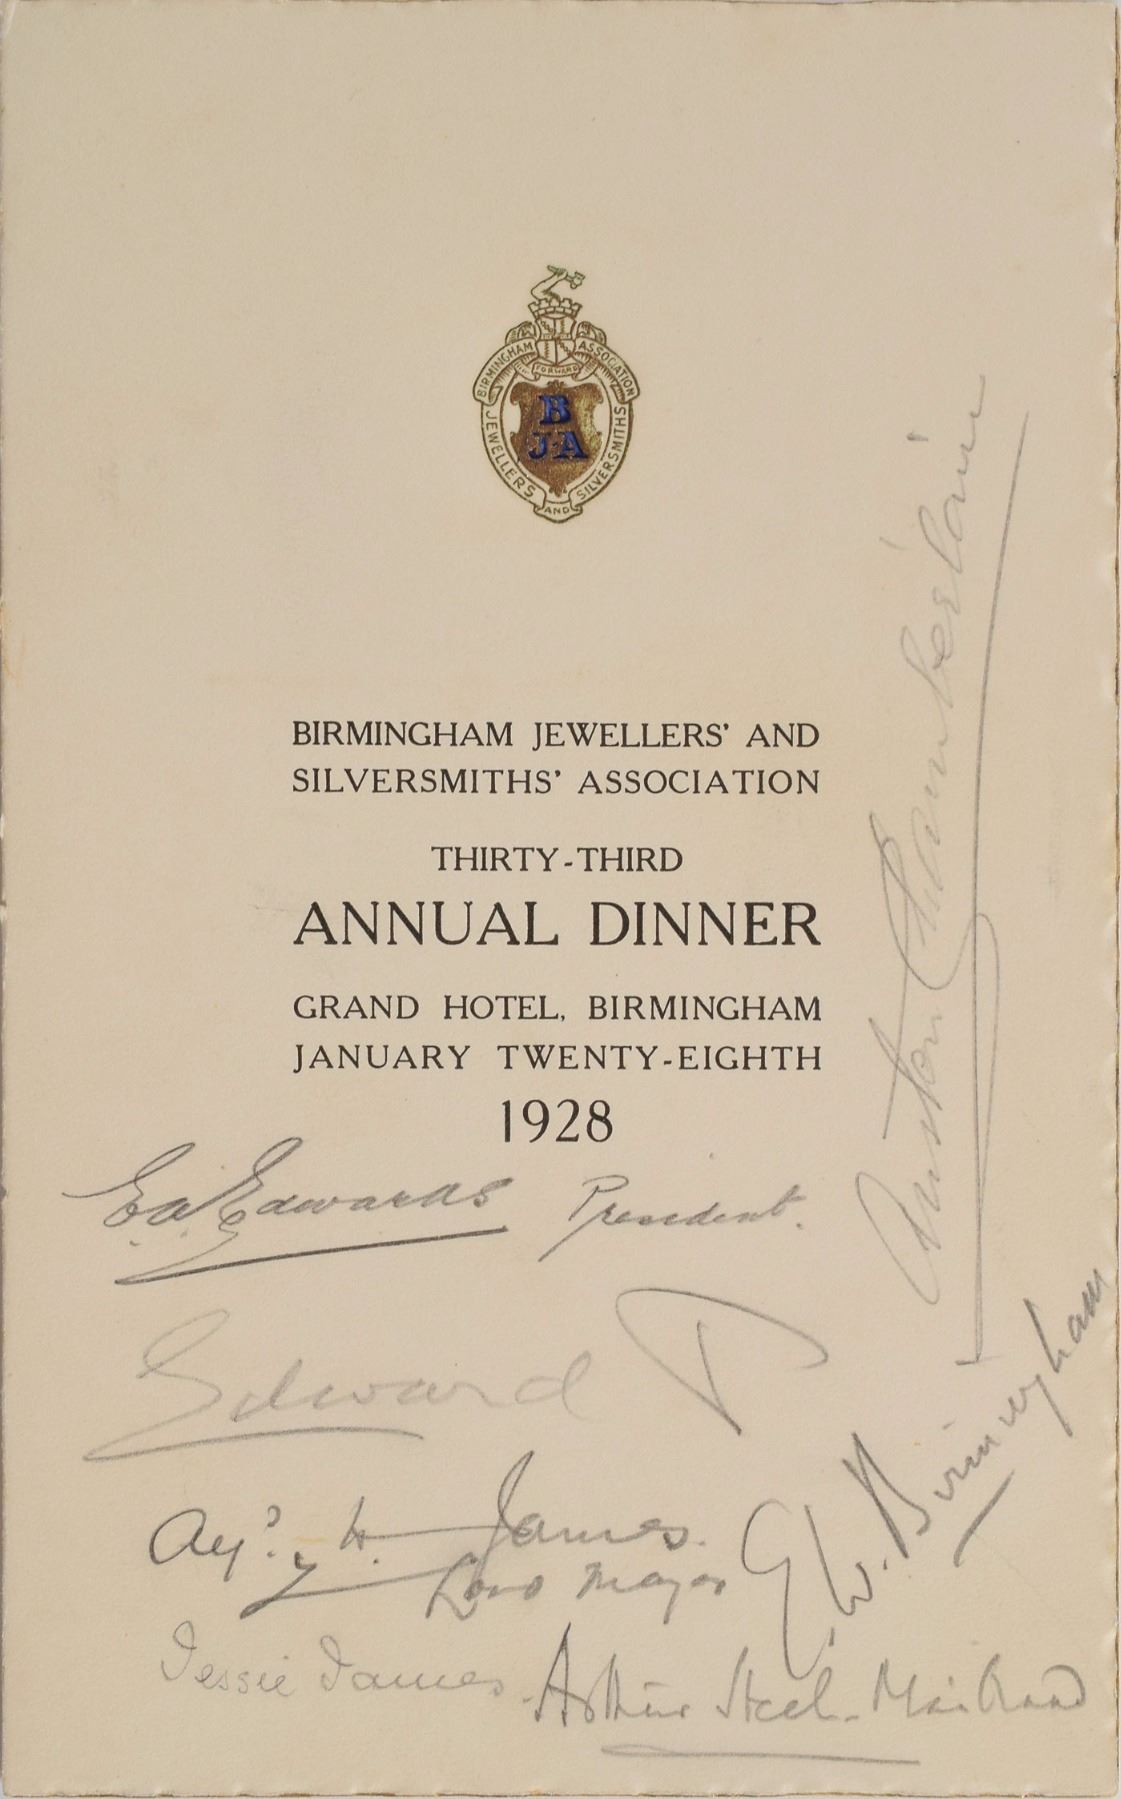 BIRMINGHAM ASSOCIATION
FORWARD
B
J·A
JEWELLERS AND SILVERSMITHS
BIRMINGHAM JEWELLERS' AND
SILVERSMITHS' ASSOCIATION
THIRTY-THIRD
ANNUAL DINNER
GRAND HOTEL, BIRMINGHAM
JANUARY TWENTY-EIGHTH
1928
Austen Chamberlain
E.A. Edwards President.
Edward P
E.W. Birmingham
H. James.
Lord Mayor
Jessie James.
Arthur Steel-Maitland